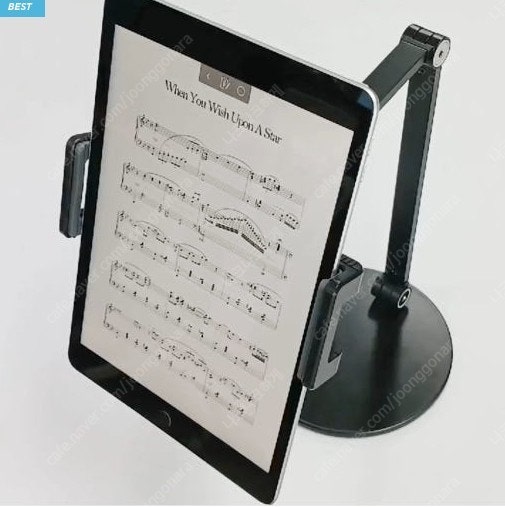 BEST
When You Wish Upon A Star
cafe.naver.com/joonggonara
cafe.naver.com/joonggonara
cafe.naver.com/joonggonara
cafe.naver.com/joonggonara